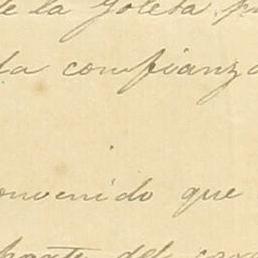 de la Goleta
da confianza
onvenido que
parte del